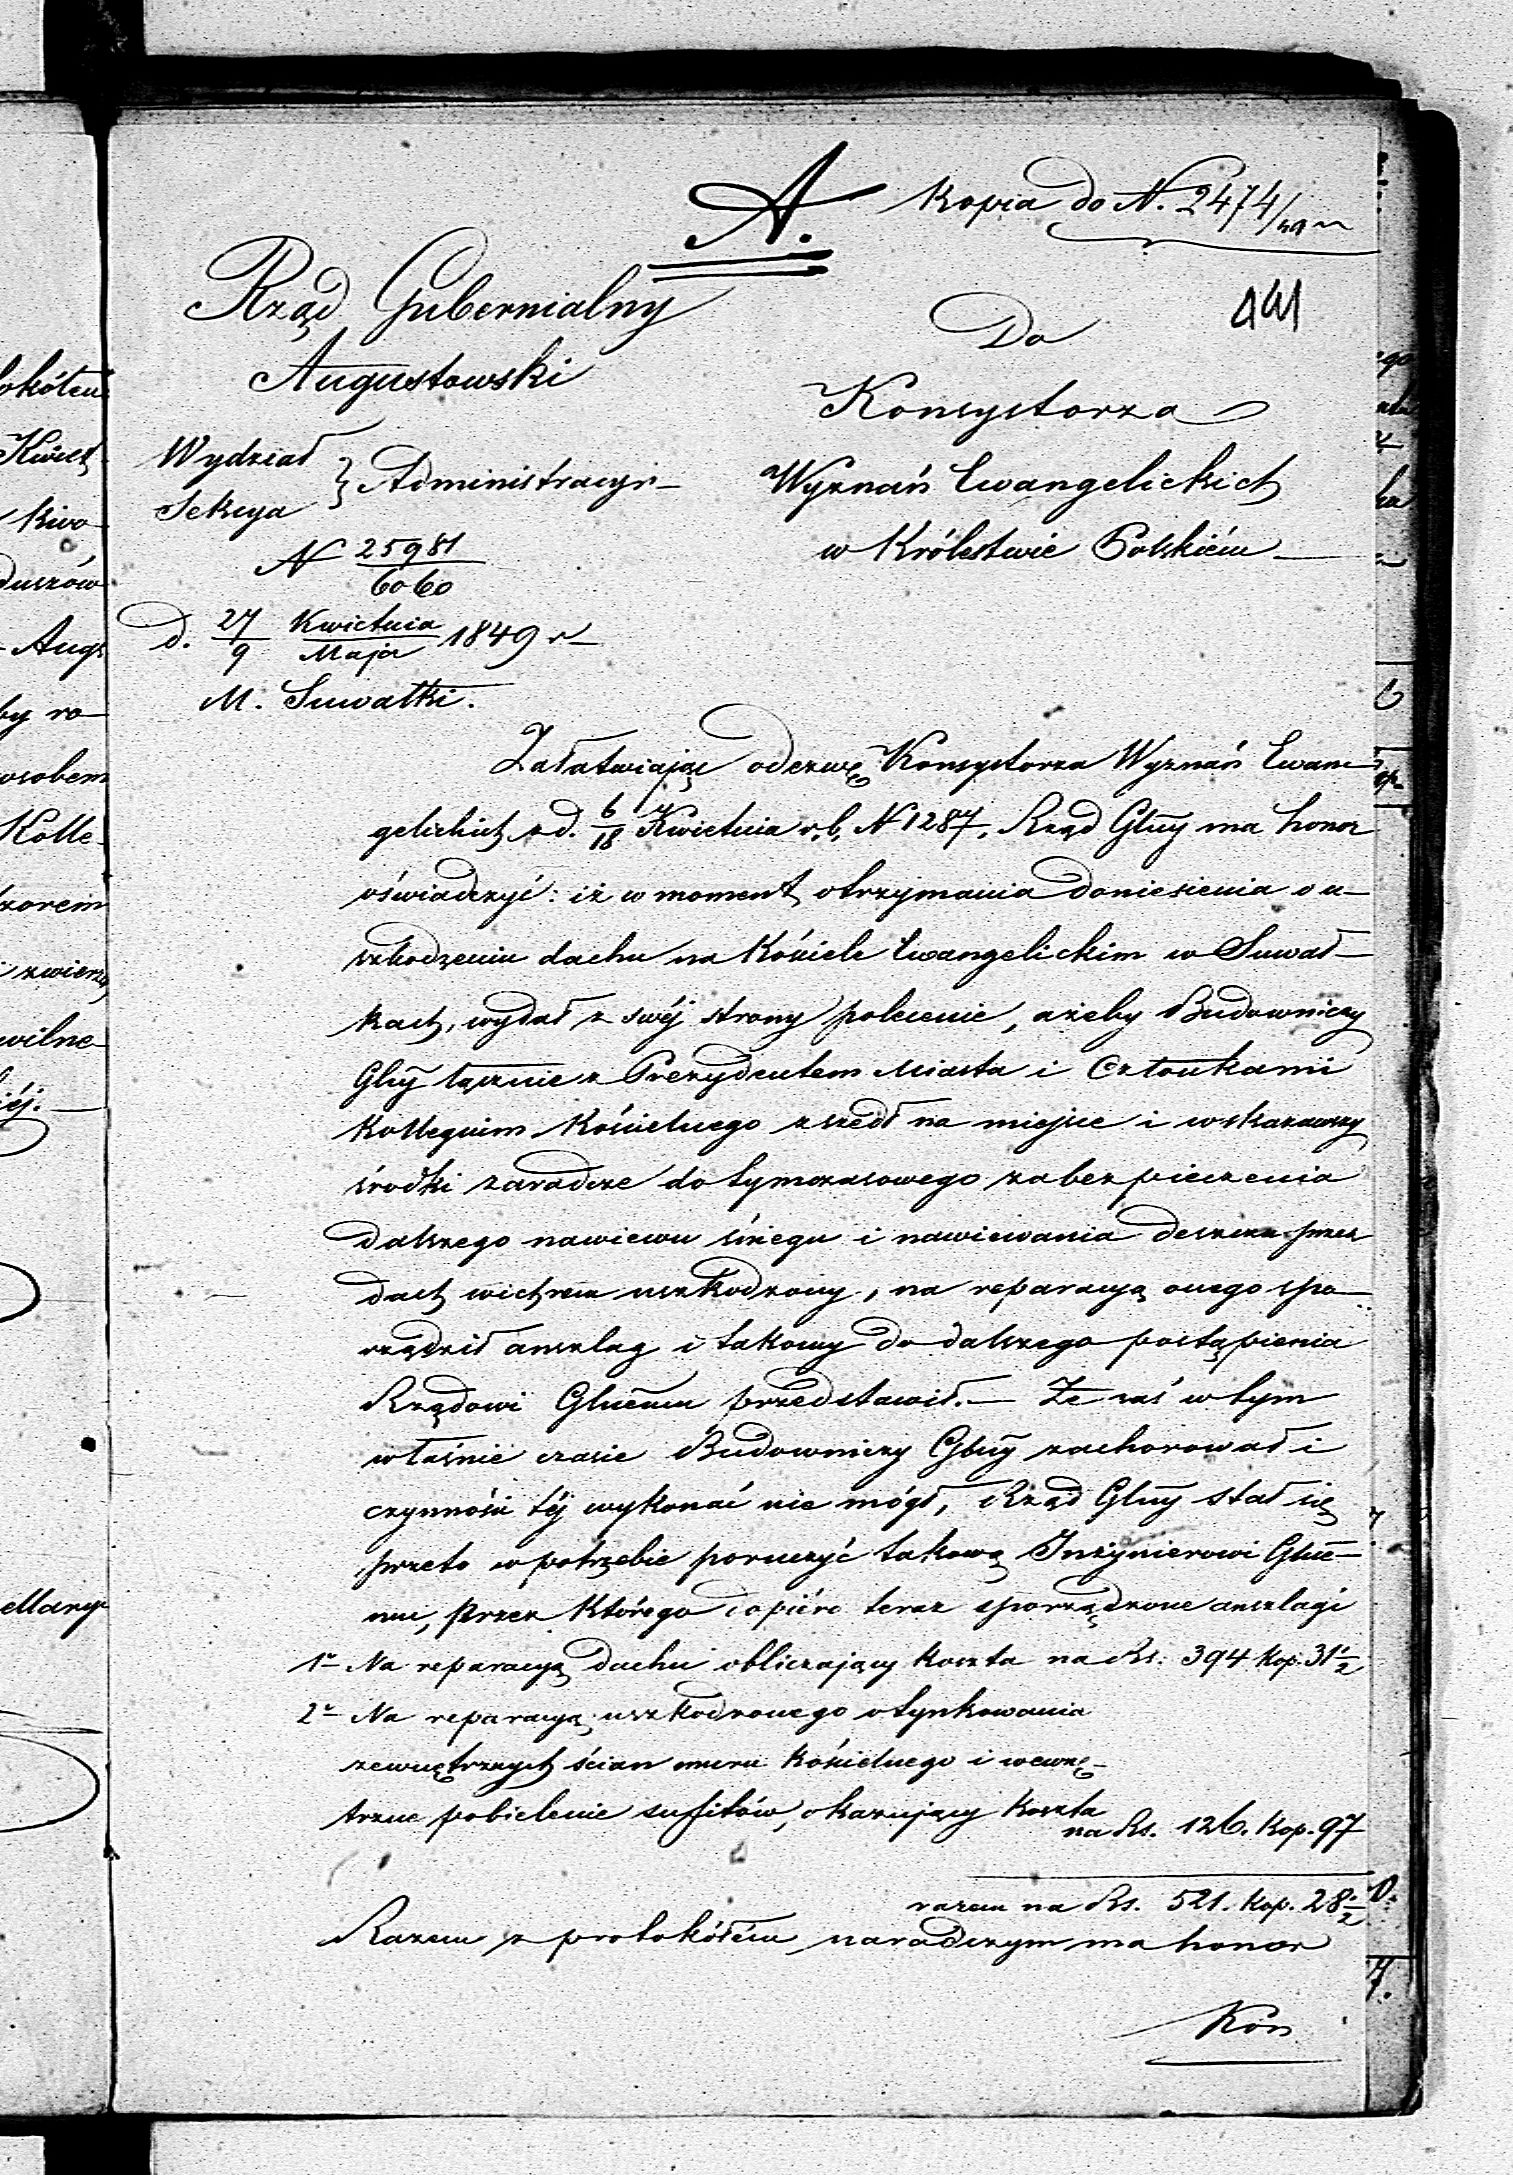 A.
Kopia do N. 2474/49
441
Rząd Gubernialny
Augustowski
Wydział
Sekcya } Administracyi
N 25981/6060
d. 27/9 Kwietnia/Maja 1849 r
M. Suwałki.
Do
Konsystorza
Wyznań Ewangelickich
w Królestwie Polskiém
Załatwiając odezwę Konsystorza Wyznań Ewan-
gelickich z d. 6/18 Kwietnia r. b. N 1287, Rząd Glny ma honor
oświadczyć: iż w moment otrzymania doniesienia o u-
szkodzeniu dachu na Kościele Ewangelickim w Suwał-
kach, wydał z swéj strony polecenie, ażeby Budowniczy
Glny łącznie z Prezydentem Miasta i Członkami
Kollegium Kościelnego zszedł na miejsce i wskazawszy
środki zaradcze do tymczasowego zabezpieczenia
dalszego nawiewu śniegu i nawiewania deszczu przez
dach wichrem uszkodzony, na reparacyą onego spo-
rządził anszlag i takowy do dalszego postąpienia
Rządowi Glnemu przedstawił. — Że zaś w tym
właśnie czasie Budowniczy Glny zachorował i
czynności téj wykonać nie mógł, Rząd Glny stał się
przeto w potrzebie poruczyć takową Inżynierowi Glne-
mu, przez którego dopiéro teraz sporządzone anszlagi
1° Na reparacyą dachu obliczający koszta na Rs. 394 kop. 31 1/2
2° Na reparacyą uszkodzonego otynkowania
zewnętrznych ścian muru Kościelnego i wewnę-
trzne pobielenie sufitów, okazujący koszta
na Rs. 126. kop. 97
razem na Rs. 521. kop. 28 1/2
Razem z protokółem naradczym ma honor
Kon